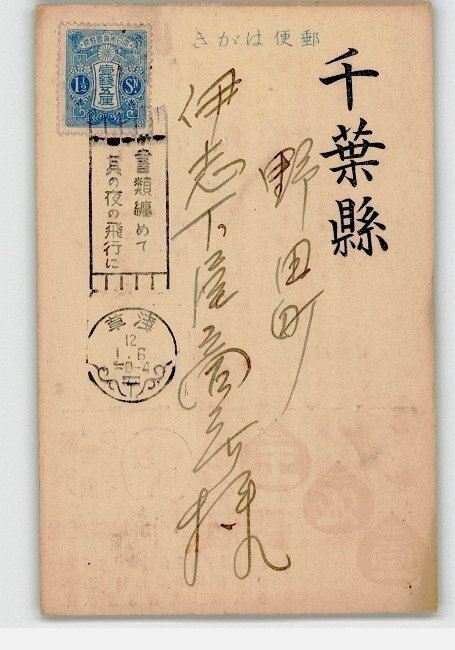 郵便はがき
千葉縣
野田町
伊志下屋商店様
壹錢五厘
1½ Sn
書類纏めて
其の夜の飛行に
淺草
12
1. 6
0-4